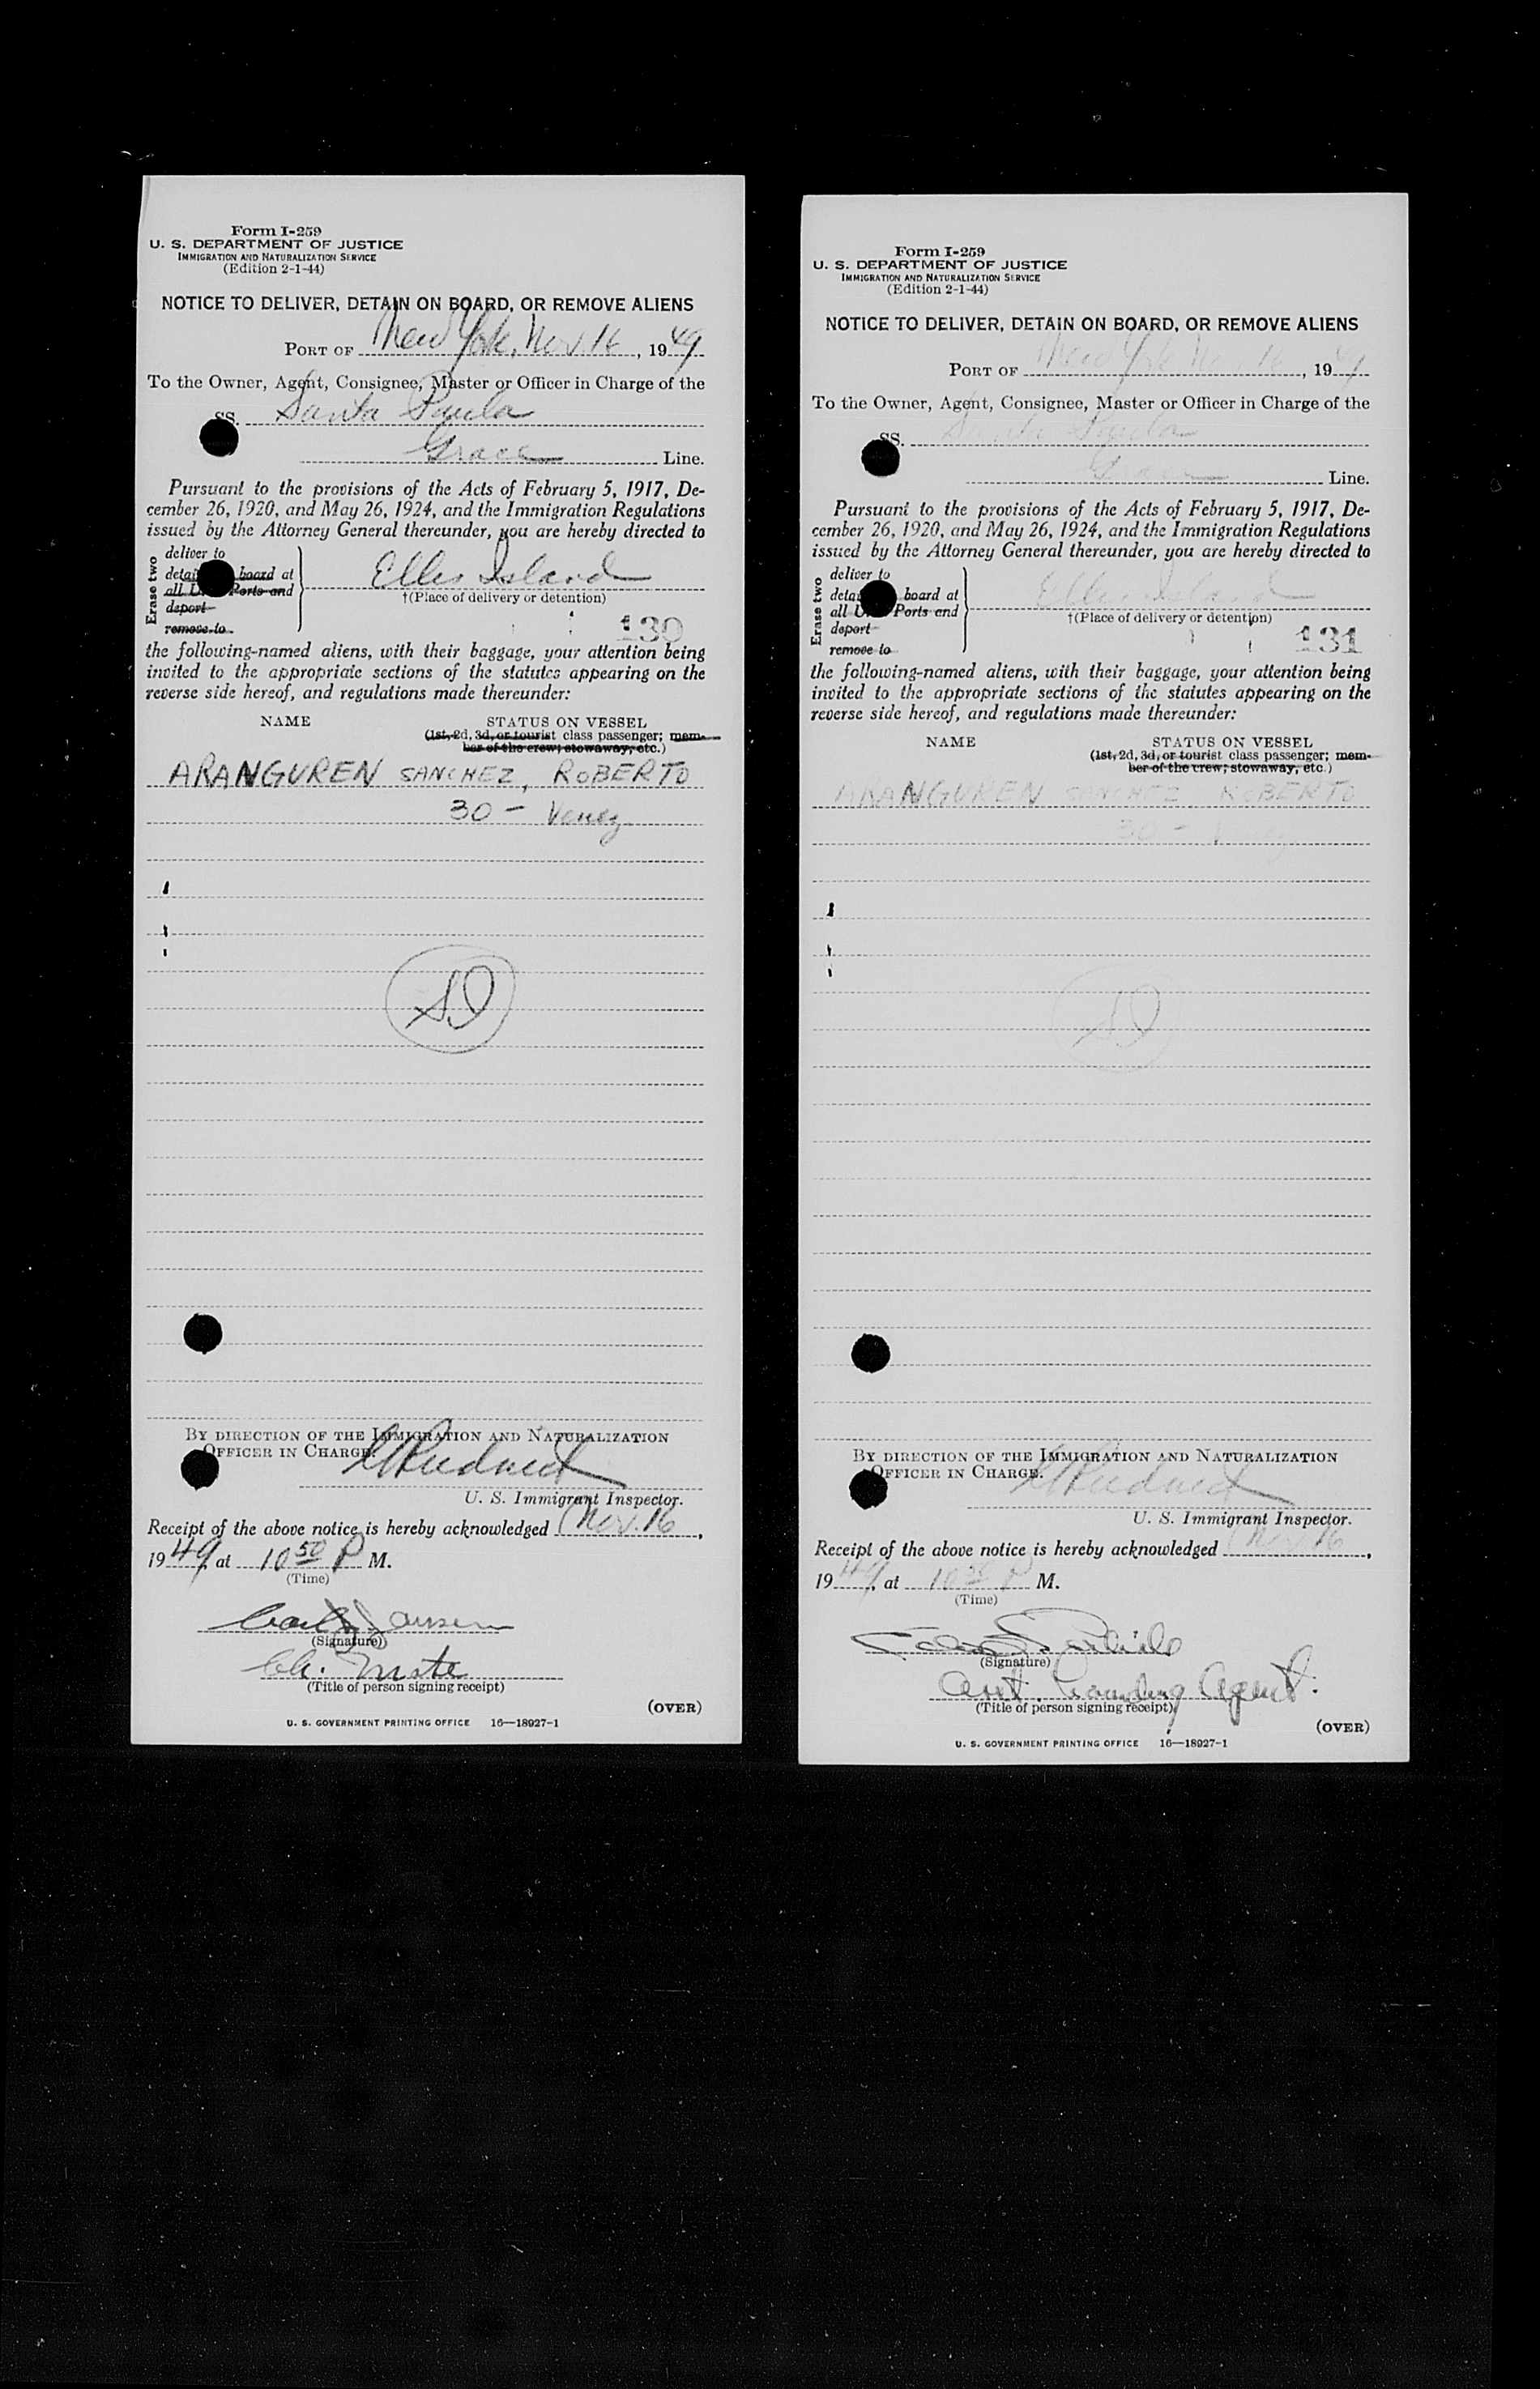 Form I-259
U. S. DEPARTMENT OF JUSTICE
IMMIGRATION AND NATURALIZATION SERVICE
(Edition 2-1-44)
NOTICE TO DELIVER, DETAIN ON BOARD, OR REMOVE ALIENS
PORT OF New York, Nov. 16, 1949
To the Owner, Agent, Consignee, Master or Officer in Charge of the
SS. Santa Paula
Grace Line.
Pursuant to the provisions of the Acts of February 5, 1917, De-
cember 26, 1920, and May 26, 1924, and the Immigration Regulations
issued by the Attorney General thereunder, you are hereby directed to
Erase two
deliver to
board at
Ellis Island
all Ports and
†(Place of delivery or detention)
deport
remove to
130
the following-named aliens, with their baggage, your attention being
invited to the appropriate sections of the statutes appearing on the
reverse side hereof, and regulations made thereunder:
NAME STATUS ON VESSEL
(1st, 2d, 3d, or tourist class passenger; mem-
ber of the crew; stowaway, etc.)
ARANGUREN SANCHEZ, ROBERTO
30 - Venez
SI
BY DIRECTION OF THE IMMIGRATION AND NATURALIZATION
OFFICER IN CHARGE:
U. S. Immigrant Inspector.
Receipt of the above notice is hereby acknowledged Nov. 16,
1949, at 10 50 P M.
(Time)
Jansen
(Signature)
Ch. Mate
(Title of person signing receipt)
(OVER)
U. S. GOVERNMENT PRINTING OFFICE 16—18927-1
Form I-259
U. S. DEPARTMENT OF JUSTICE
IMMIGRATION AND NATURALIZATION SERVICE
(Edition 2-1-44)
NOTICE TO DELIVER, DETAIN ON BOARD, OR REMOVE ALIENS
PORT OF New York Nov. 16, 1949
To the Owner, Agent, Consignee, Master or Officer in Charge of the
SS. Santa Paula
Grace Line.
Pursuant to the provisions of the Acts of February 5, 1917, De-
cember 26, 1920, and May 26, 1924, and the Immigration Regulations
issued by the Attorney General thereunder, you are hereby directed to
Erase two
deliver to
board at
Ellis Island
all Ports and
†(Place of delivery or detention)
deport
remove to
131
the following-named aliens, with their baggage, your attention being
invited to the appropriate sections of the statutes appearing on the
reverse side hereof, and regulations made thereunder:
NAME STATUS ON VESSEL
(1st, 2d, 3d, or tourist class passenger; mem-
ber of the crew; stowaway, etc.)
ARANGUREN SANCHEZ ROBERTO
30 - Venez
SI
BY DIRECTION OF THE IMMIGRATION AND NATURALIZATION
OFFICER IN CHARGE.
U. S. Immigrant Inspector.
Receipt of the above notice is hereby acknowledged Nov. 16,
1949, at 10 50 P M.
(Time)
(Signature)
Asst. Boarding Agent.
(Title of person signing receipt)
(OVER)
U. S. GOVERNMENT PRINTING OFFICE 16—18927-1